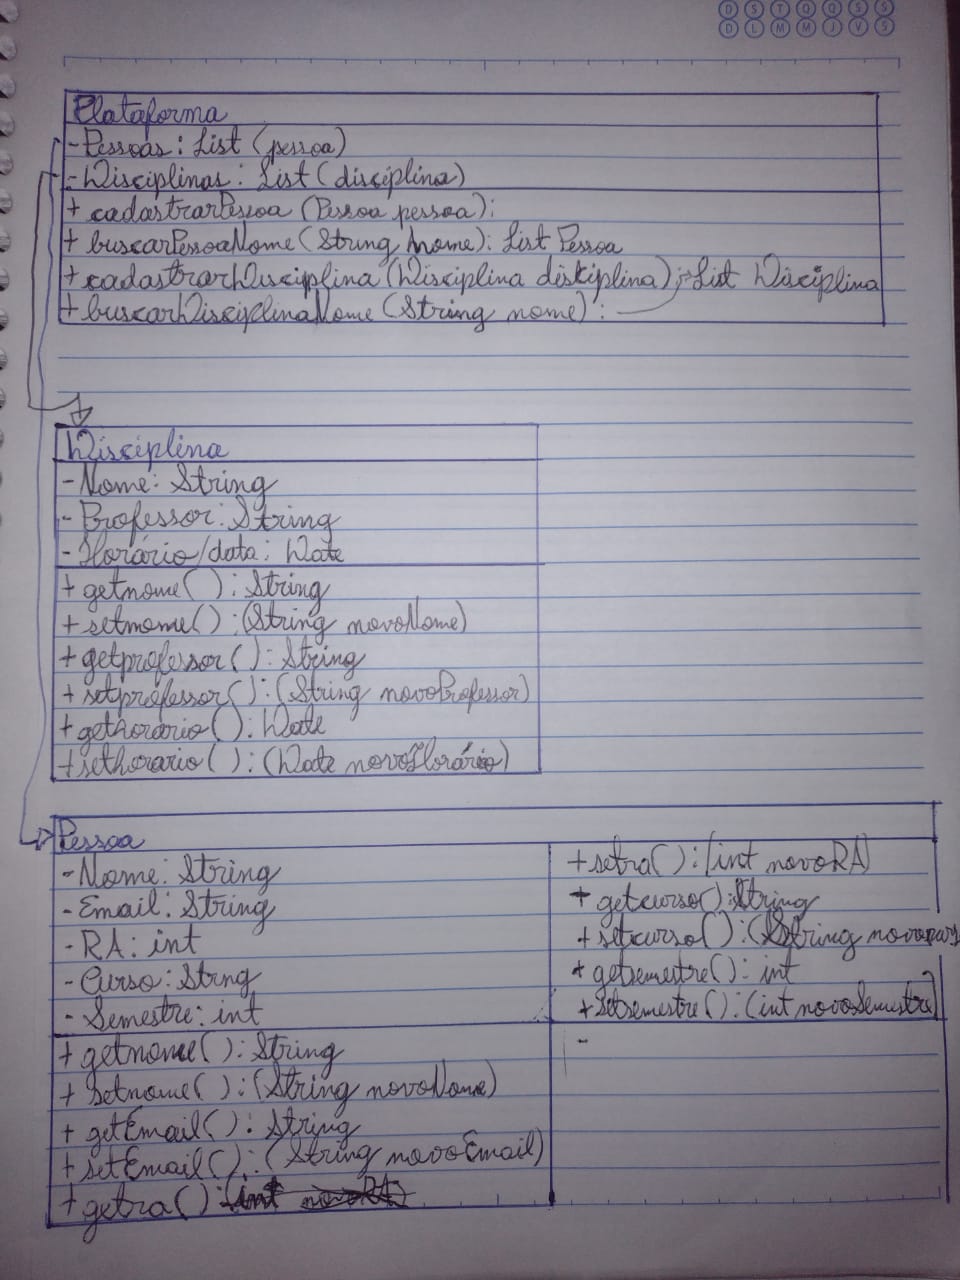 D S T Q Q S S
D L M M J V S
Plataforma
- Pessoas: List (pessoa)
- Disciplinas: List (disciplina)
+ cadastrarPessoa (Pessoa pessoa):
+ buscarPessoaNome (String nome): List Pessoa
+ cadastrarDisciplina (Disciplina disciplina): List Disciplina
+ buscarDisciplinaNome (String nome):
Disciplina
- Nome: String
- Professor: String
- Horário/data: Date
+ getnome( ): String
+ setnome( ): (String novoNome)
+ getprofessor( ): String
+ setprofessor( ): (String novoProfessor)
+ gethorario( ): Date
+ sethorario( ): (Date novoHorário)
Pessoa
- Nome: String
- Email: String
- RA: int
- Curso: String
- Semestre: int
+ getnome( ): String
+ setnome( ): (String novoNome)
+ getEmail( ): String
+ setEmail( ): (String novoEmail)
+ getra( ): (int novoRA)
+ setra( ): (int novoRA)
+ getcurso( ): String
+ setcurso( ): (String
+ getsemestre( ): int
+ setsemestre( ): (int novoSemestre)
-